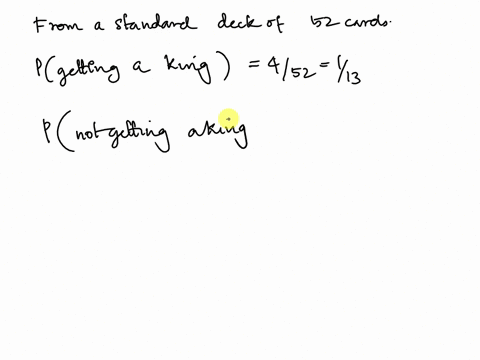 From a standard deck of 52 cards.
P(getting a king) = 4/52 = 1/13
P(not getting a king